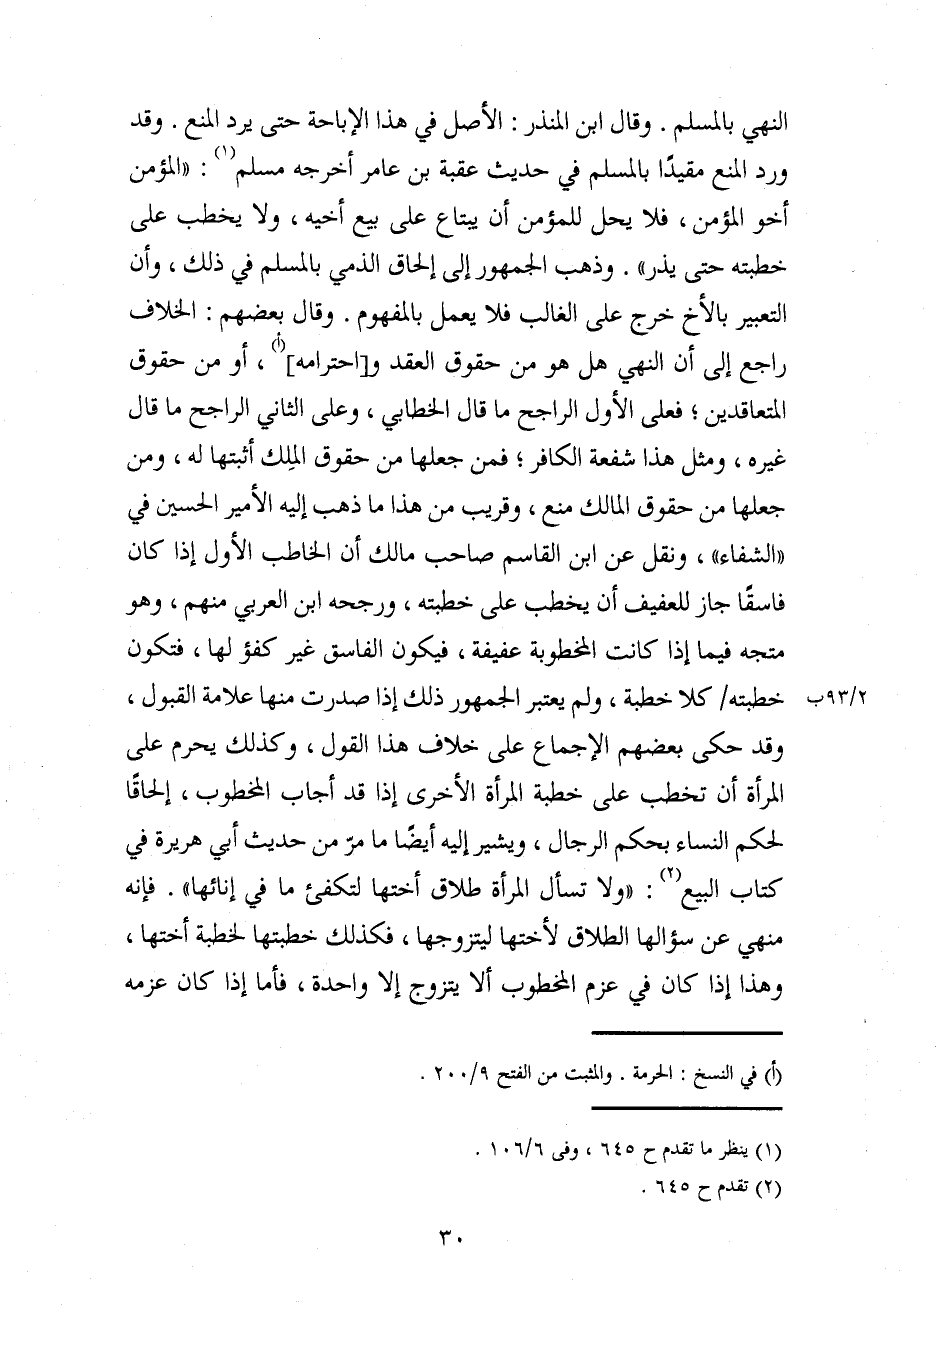 النهي بالمسلم . وقال ابن المنذر : الأصل في هذا الإباحة حتى يرد المنع . وقد
ورد المنع مقيدًا بالمسلم في حديث عقبة بن عامر أخرجه مسلم(١) : «المؤمن
أخو المؤمن ، فلا يحل للمؤمن أن يبتاع على بيع أخيه ، ولا يخطب على
خطبته حتى يذر» . وذهب الجمهور إلى إلحاق الذمي بالمسلم في ذلك ، وأن
التعبير بالأخ خرج على الغالب فلا يعمل بالمفهوم . وقال بعضهم : الخلاف
راجع إلى أن النهي هل هو من حقوق العقد و[احترامه](أ) ، أو من حقوق
المتعاقدين ؛ فعلى الأول الراجح ما قال الخطابي ، وعلى الثاني الراجح ما قال
غيره ، ومثل هذا شفعة الكافر ؛ فمن جعلها من حقوق المِلك أثبتها له ، ومن
جعلها من حقوق المالك منع ، وقريب من هذا ما ذهب إليه الأمير الحسين في
«الشفاء» ، ونقل عن ابن القاسم صاحب مالك أن الخاطب الأول إذا كان
فاسقًا جاز للعفيف أن يخطب على خطبته ، ورجحه ابن العربي منهم ، وهو
متجه فيما إذا كانت المخطوبة عفيفة ، فيكون الفاسق غير كفؤ لها ، فتكون
خطبته/ كلا خطبة ، ولم يعتبر الجمهور ذلك إذا صدرت منها علامة القبول ،
٩٣/٢ب
وقد حكى بعضهم الإجماع على خلاف هذا القول ، وكذلك يحرم على
المرأة أن تخطب على خطبة المرأة الأخرى إذا قد أجاب المخطوب ، إلحاقًا
لحكم النساء بحكم الرجال ، ويشير إليه أيضًا ما مرّ من حديث أبي هريرة في
كتاب البيع(٢) : «ولا تسأل المرأة طلاق أختها لتكفئ ما في إنائها» . فإنه
منهي عن سؤالها الطلاق لأختها ليتزوجها ، فكذلك خطبتها لخطبة أختها ،
وهذا إذا كان في عزم المخطوب ألا يتزوج إلا واحدة ، فأما إذا كان عزمه
(أ) في النسخ : الحرمة . والمثبت من الفتح ٢٠٠/٩ .
(١) ينظر ما تقدم ح ٦٤٥ ، وفى ١٠٦/٦ .
(٢) تقدم ح ٦٤٥ .
٣٠